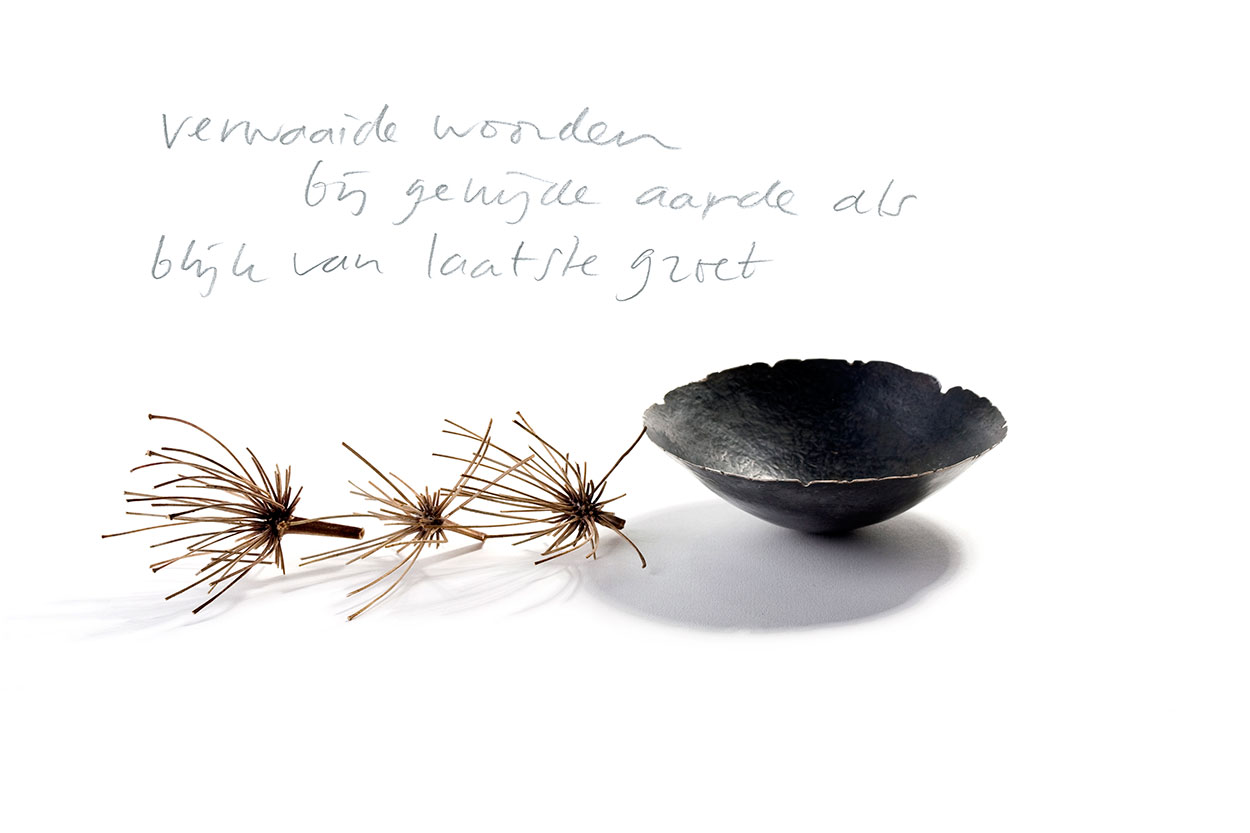 verwaaide woorden
bij gewijde aarde als
blijk van laatste groet